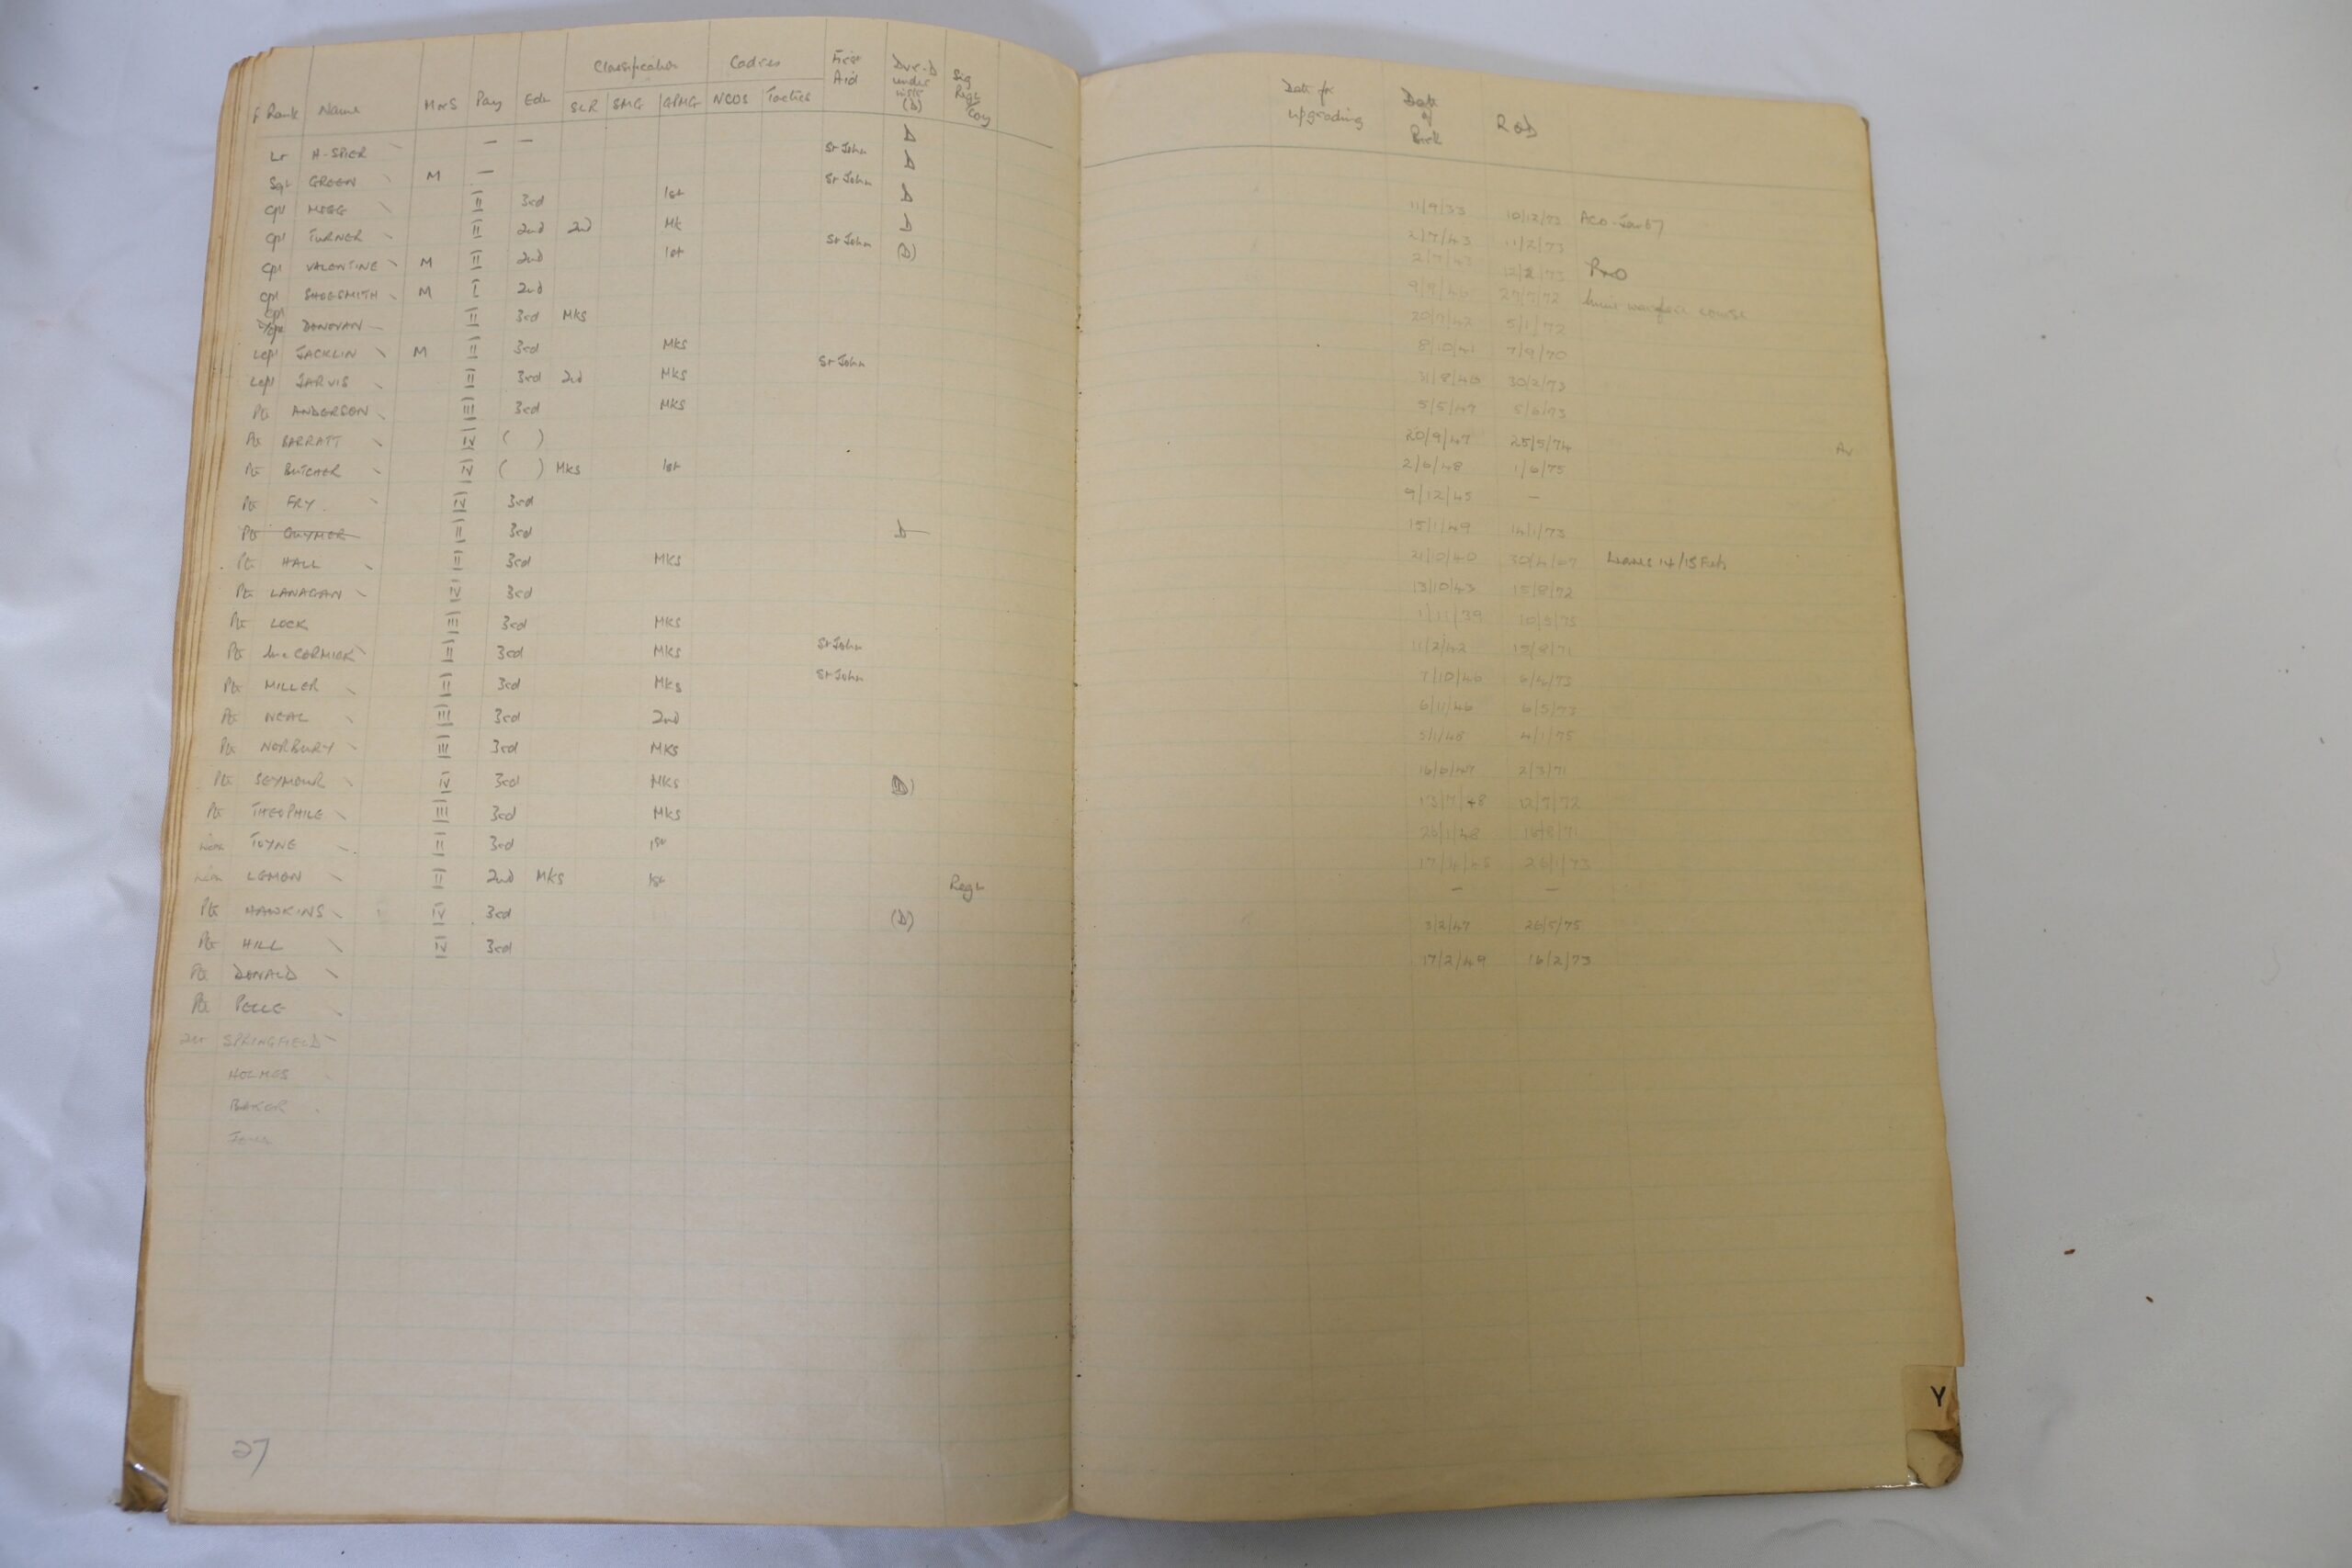 Classification Cadres First Aid Dvr-D under instr (D) Sig Regt Coy
Rank Name MorS Pay Edn SLR SMG GPMG NCOS Tactics
Lt H-SPIER — — D
Sgt GREEN M — St John D
Cpl MOGG II 3rd 1st St John D
Cpl TURNER II 2nd 2nd Mk D
Cpl VALENTINE M II 2nd 1st St John (D)
Cpl SHOESMITH M I 2nd
Cpl DONOVAN II 3rd Mks
Lcpl JACKLIN M II 3rd Mks
Lcpl JARVIS II 3rd 2nd Mks St John
Pte ANDERSON III 3rd Mks
Pte BARRATT IV ( )
Pte BUTCHER IV ( ) Mks 1st
Pte FRY IV 3rd
Pte GUYMER II 3rd D
Pte HALL II 3rd Mks
Pte LANAGAN IV 3rd
Pte LOCK III 3rd Mks
Pte MacCORMICK II 3rd Mks St John
Pte MILLER II 3rd Mks St John
Pte NEAL III 3rd 2nd
Pte NORBURY III 3rd Mks
Pte SEYMOUR IV 3rd Mks (D)
Pte THEOPHILE III 3rd Mks
TOYNE II 3rd 1st
LEMON II 2nd Mks 1st Regt
Pte HAWKINS IV 3rd (D)
Pte HILL IV 3rd
Pte DONALD
Pte PELLE
2Lt SPRINGFIELD
HOLMES
BAKER
27
Date for upgrading Date of Birth ROD
11/9/33 10/12/73 ACO - Jan 67
2/7/43 11/2/73
2/7/43 12/2/73 PRO
9/9/46 27/7/72 course
20/7/42 5/1/72
8/10/41 7/9/70
31/8/40 30/2/73
5/5/49 5/6/73
20/9/47 25/5/74
2/6/48 1/6/75
9/12/45 —
15/1/49 14/1/73
21/10/40 30/4/67 Leaves 14/15 Feb
13/10/43 15/8/72
1/11/39 10/5/75
11/2/42 15/8/71
7/10/46 6/4/73
6/11/46 6/5/73
5/1/48 4/1/75
16/6/47 2/3/71
13/7/48 12/7/72
26/1/48 16/8/71
26/1/73
— —
3/2/47 26/5/75
17/2/49 16/2/73
Y